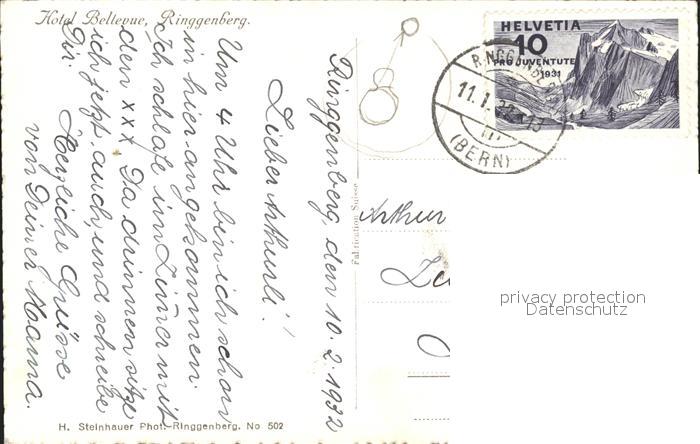 Hotel Bellevue, Ringgenberg.
Ringgenberg, den 10. 2. 1932
Lieber Arthurli!
Um 4 Uhr bin ich schon
in hier angekommen.
Ich schlafe im Zimer mit
den xxx. Da drinnen sitze
ich jetzt auch und schreibe
Dir.
Herzliche Grüsse
von Deiner Mama.
H. Steinhauer Phot. Ringgenberg. No 502
Fabrication Suisse
HELVETIA
10
PRO JUVENTUTE
1931
(BERN)
Arthur
privacy protection
Datenschutz